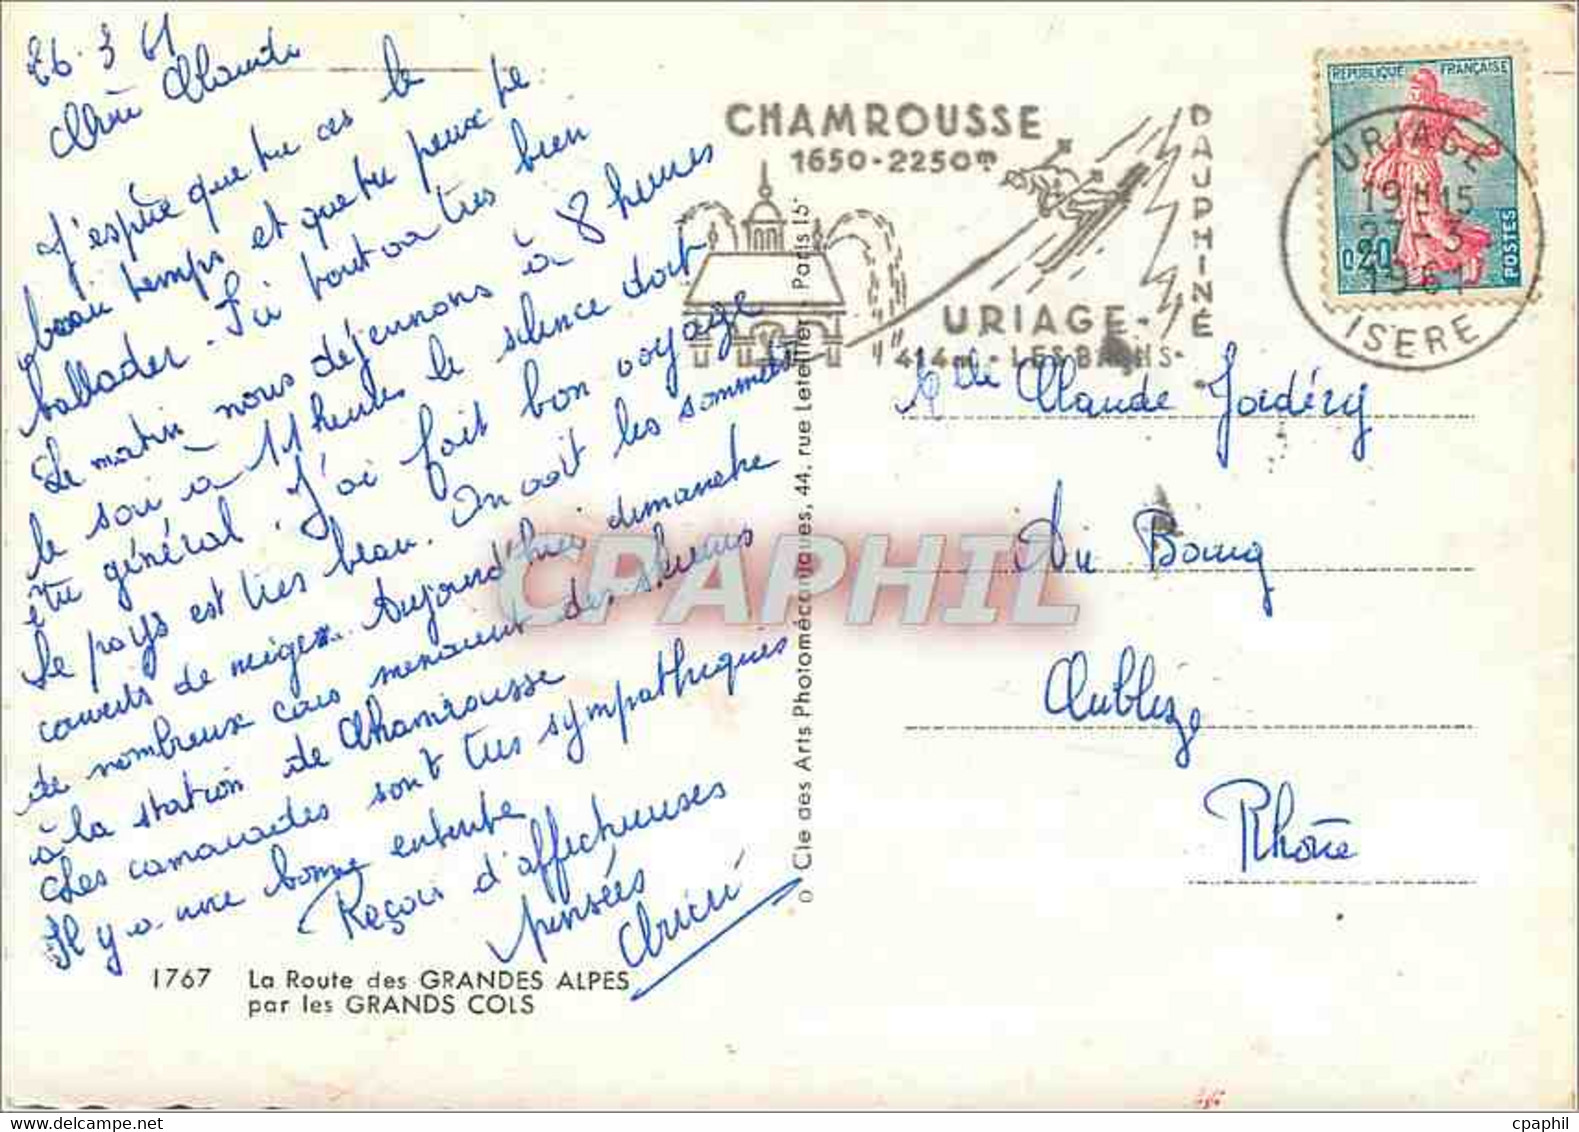 26.3 61
Chère Claude
J'espère que tu as le
beau temps et que tu peux te
ballader. Ici tout va très bien
Le matin nous déjeunons à 8 heures
le soir à 11 heures le silence doit
être général. J'ai fait bon voyage
Le pays est très beau. On voit les sommets
couverts de neige. Aujourd'hui dimanche
de nombreux cars menaient des skieurs
à la station de Chamrousse
Ches camarades sont très sympathiques
Il y a une bonne entente
Reçois d'affectueuses
pensées
1767 La Route des GRANDES ALPES
par les GRANDS COLS
Cie des Arts Photomécaniques, 44, rue Letellier - Paris 15e
CHAMROUSSE
1650-2250m
DAUPHINÉ
URIAGE-
414m - LES BAINS-
URIAGE
19H15
27-3
1961
ISERE
REPUBLIQUE FRANÇAISE
0,20
POSTES
Melle Claude
Du Bourg
Rhône
CPAPHIL
cpaphil